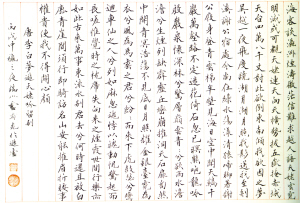 海客談瀛洲煙濤微茫信難求越人語天姥雲霓
明滅或可覩天姥連天向天橫勢拔五嶽掩赤城
天台四萬八千丈對此欲倒東南傾我欲因之夢
吳越一夜飛度鏡湖月湖月照我影送我至剡
溪謝公宿處今尚在淥水蕩漾清猿啼腳著謝
公屐身登青雲梯半壁見海日空中聞天雞千
巖萬轉路不定迷花倚石忽已暝熊咆龍吟
殷巖泉慄深林兮驚層巔雲青青兮欲雨水澹
澹兮生煙列缺霹靂丘巒崩摧洞天石扉訇然
中開青冥浩蕩不見底日月照耀金銀臺霓為
衣兮風為馬雲之君兮紛紛而來下虎鼓瑟兮鸞
回車仙之人兮列如麻忽魂悸以魄動怳驚起而長嗟
惟覺時之枕席失向來之煙霞世間行樂亦
如此古來萬事東流水別君去兮何時還且放白
鹿青崖間須行即騎訪名山安能摧眉折腰事
唐李白夢遊天姥吟留別
丙戌中秋之夜